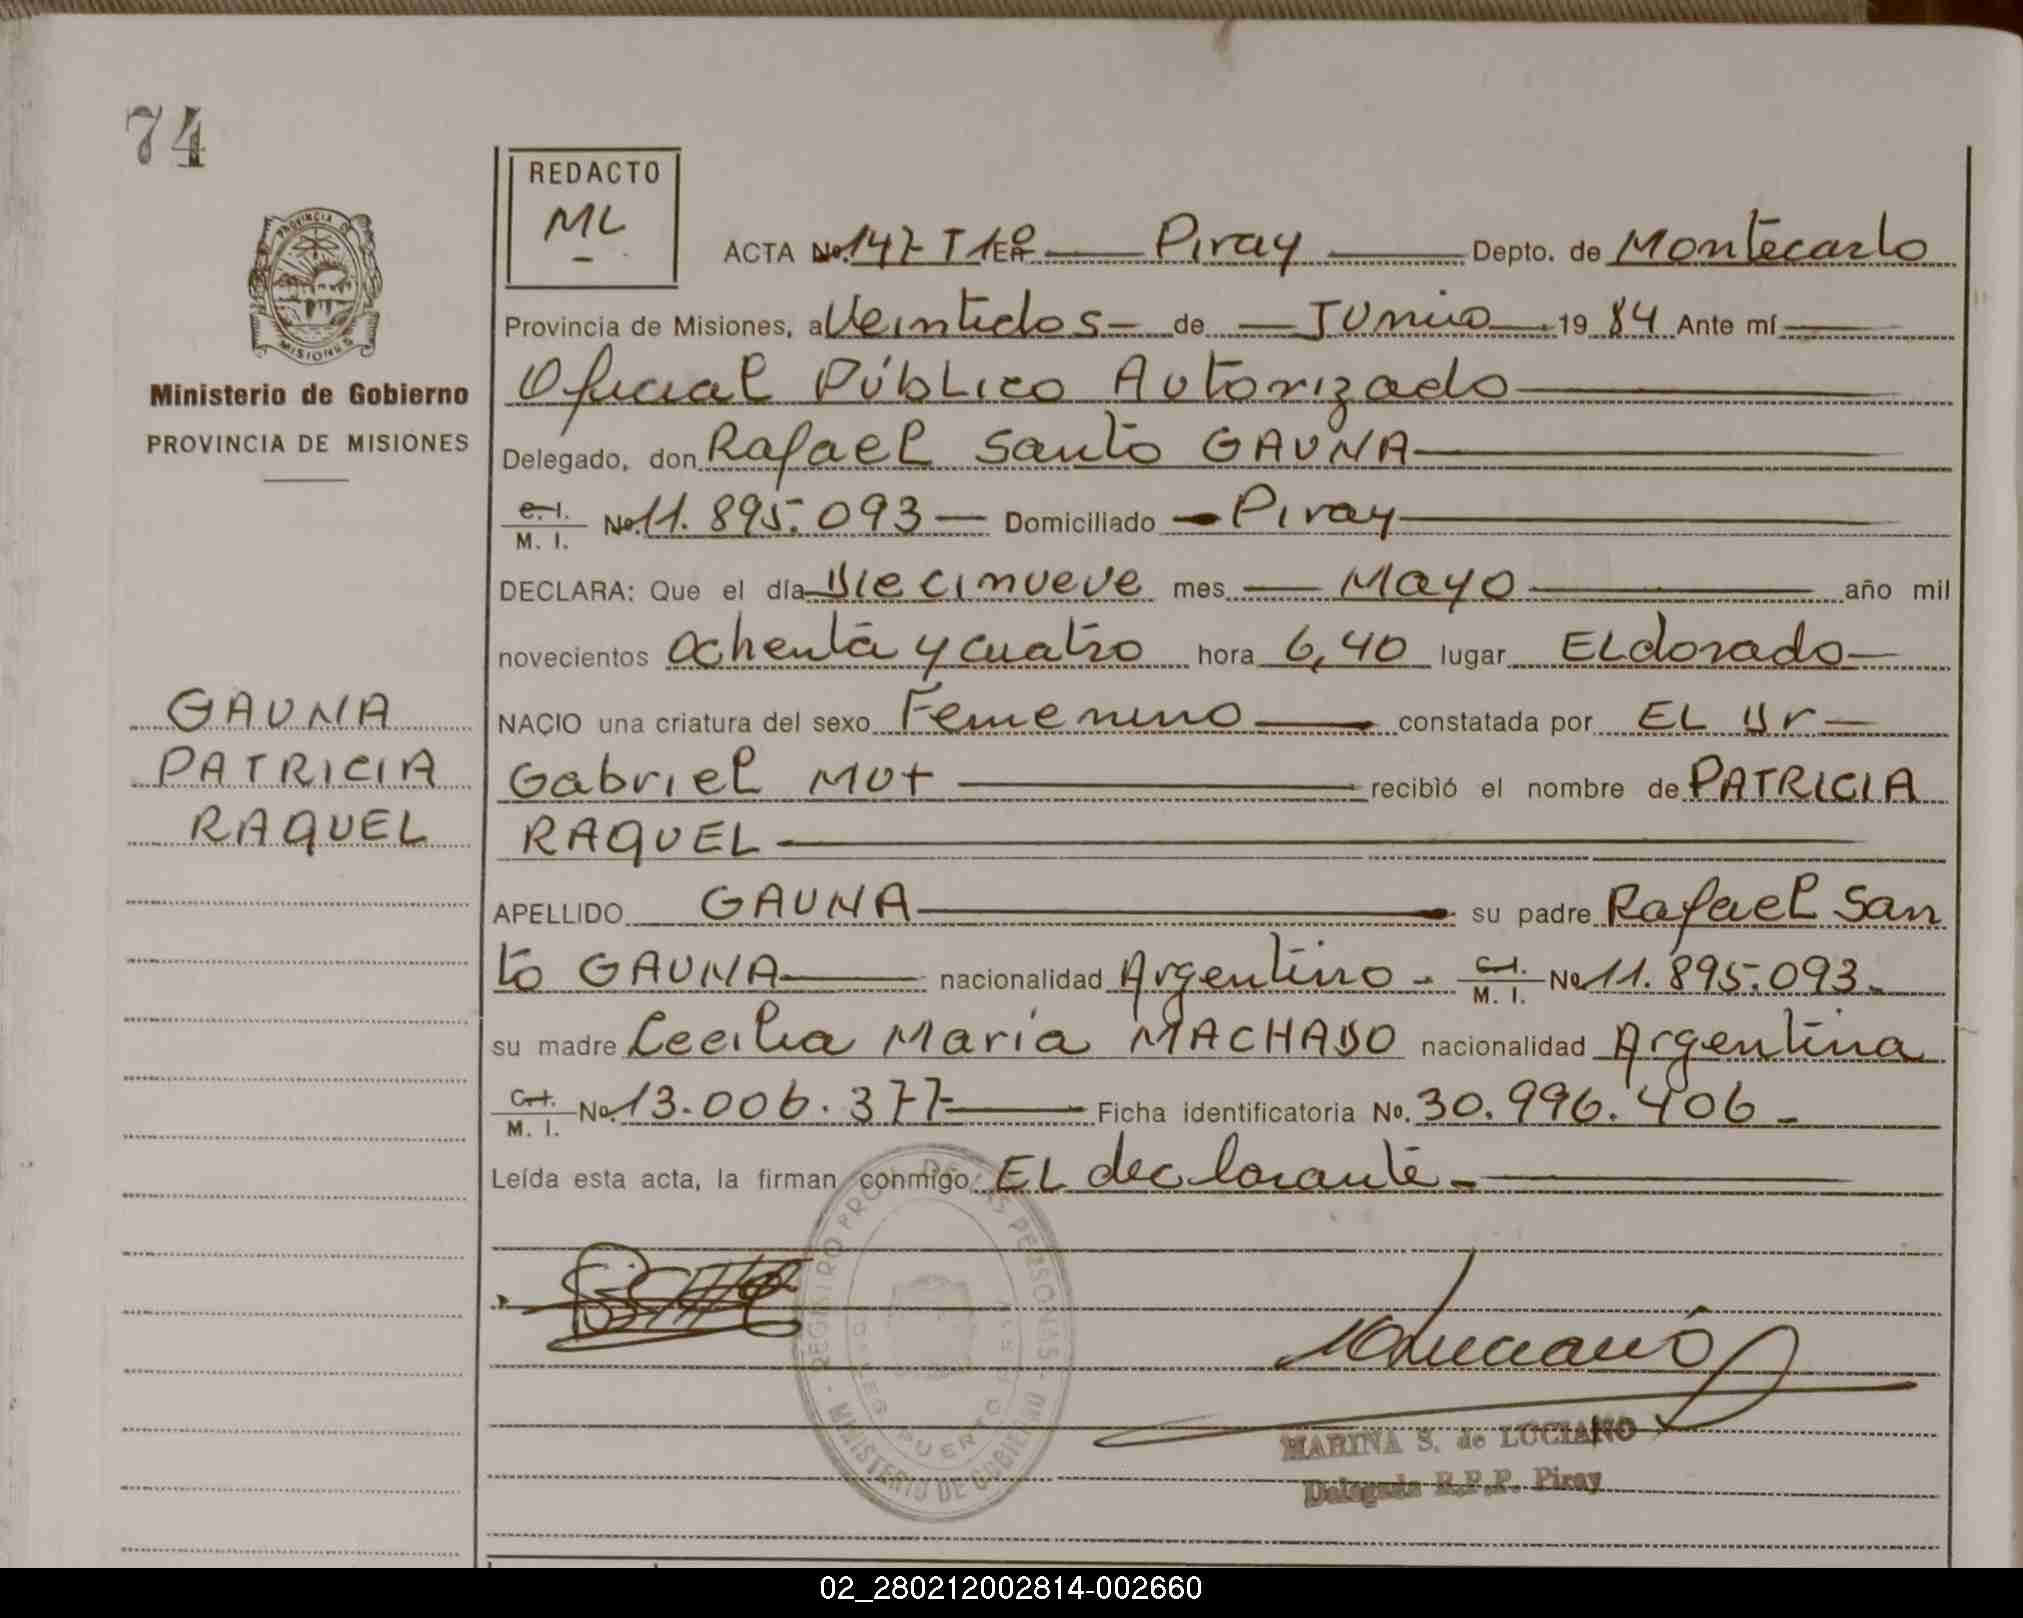 74
REDACTO
ML
ACTA No. 147 T 1º EN Piray Depto. de Montecarlo
Provincia de Misiones, a Veintidos de Junio 19 84 Ante mí
Oficial Público Autorizado
Delegado, don Rafael Santo GAUNA
C. I. / M. I. No. 11.895.093 Domiciliado Piray
DECLARA: Que el día Diecinueve mes Mayo año mil
novecientos Ochenta y cuatro hora 6,40 lugar ELdorado
NACIO una criatura del sexo Femenino constatada por EL Dr
Gabriel Mut recibió el nombre de PATRICIA
RAQUEL
APELLIDO GAUNA su padre Rafael San
to GAUNA nacionalidad Argentino C. I. / M. I. No 11.895.093.
su madre Cecilia María MACHADO nacionalidad Argentina
C. I. / M. I. No. 13.006.377 Ficha identificatoria No. 30.996.406
Leída esta acta, la firman conmigo EL declarante
PROVINCIA D
MISIONES
Ministerio de Gobierno
PROVINCIA DE MISIONES
GAUNA
PATRICIA
RAQUEL
REGISTRO PROV. DE LAS PERSONAS
MINISTERIO DE GOBIERNO
PUERTO
MARINA S. de LUCIANO
Delegada R.P.P. Piray
02_280212002814-002660